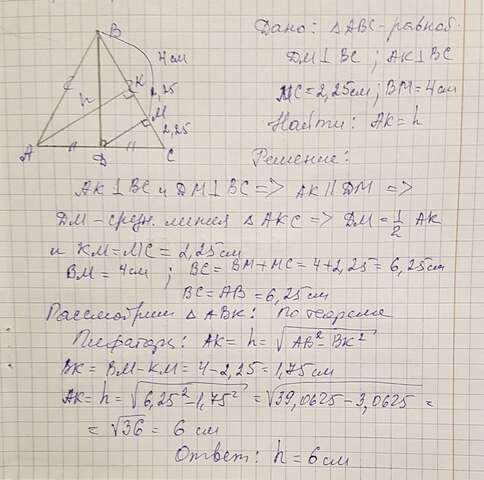 B
4см
K
2,25
h
M
2,25
A
D
C
Дано: △ABC - равноб.
DM⊥BC ; AK⊥BC
MC=2,25см; BM=4см
Найти: AK=h
Решение:
AK⊥BC и DM⊥BC => AK∥DM =>
DM - средн. линия △AKC => DM=1/2 AK
и KM=MC=2,25см
BM=4см ; BC=BM+MC=4+2,25=6,25см
BC=AB=6,25см
Рассмотрим △ABK: по теореме
Пифагора: AK=h=√(AB²-BK²)
BK=BM-KM=4-2,25=1,75см
AK=h=√(6,25²-1,75²)=√(39,0625-3,0625)=
=√36=6см
Ответ: h=6см